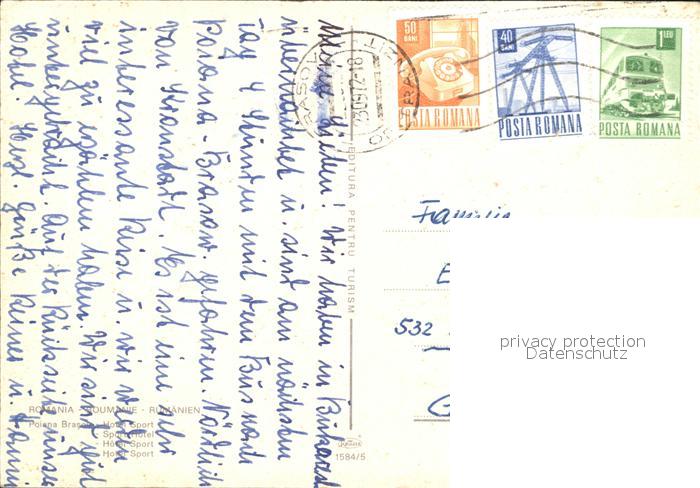 Meine Lieben! Wir haben in Bukarest
übernachtet u. sind am nächsten
Tag 4 Stunden mit dem Bus nach
Poiana - Brasov. gefahren. Nördlich
von Kronstadt. Es ist eine sehr
interessante Reise u. wir werden
viel zu erzählen haben. Wir sind gut
untergebracht. Auf der Rückseite unser
Hotel. Herzl. Grüße Reiner u.
EDITURA PENTRU TURISM
ROMANIA - ROUMANIE - RUMÄNIEN
Poiana Brașov - Hotel Sport
Sport Hotel
Hôtel Sport
Hotel Sport
1584/5
50
BANI
POSTA ROMANA
40
BANI
POSTA ROMANA
1 LEU
POSTA ROMANA
BRASOV
ORIENT
Familie
E
532
privacy protection
Datenschutz